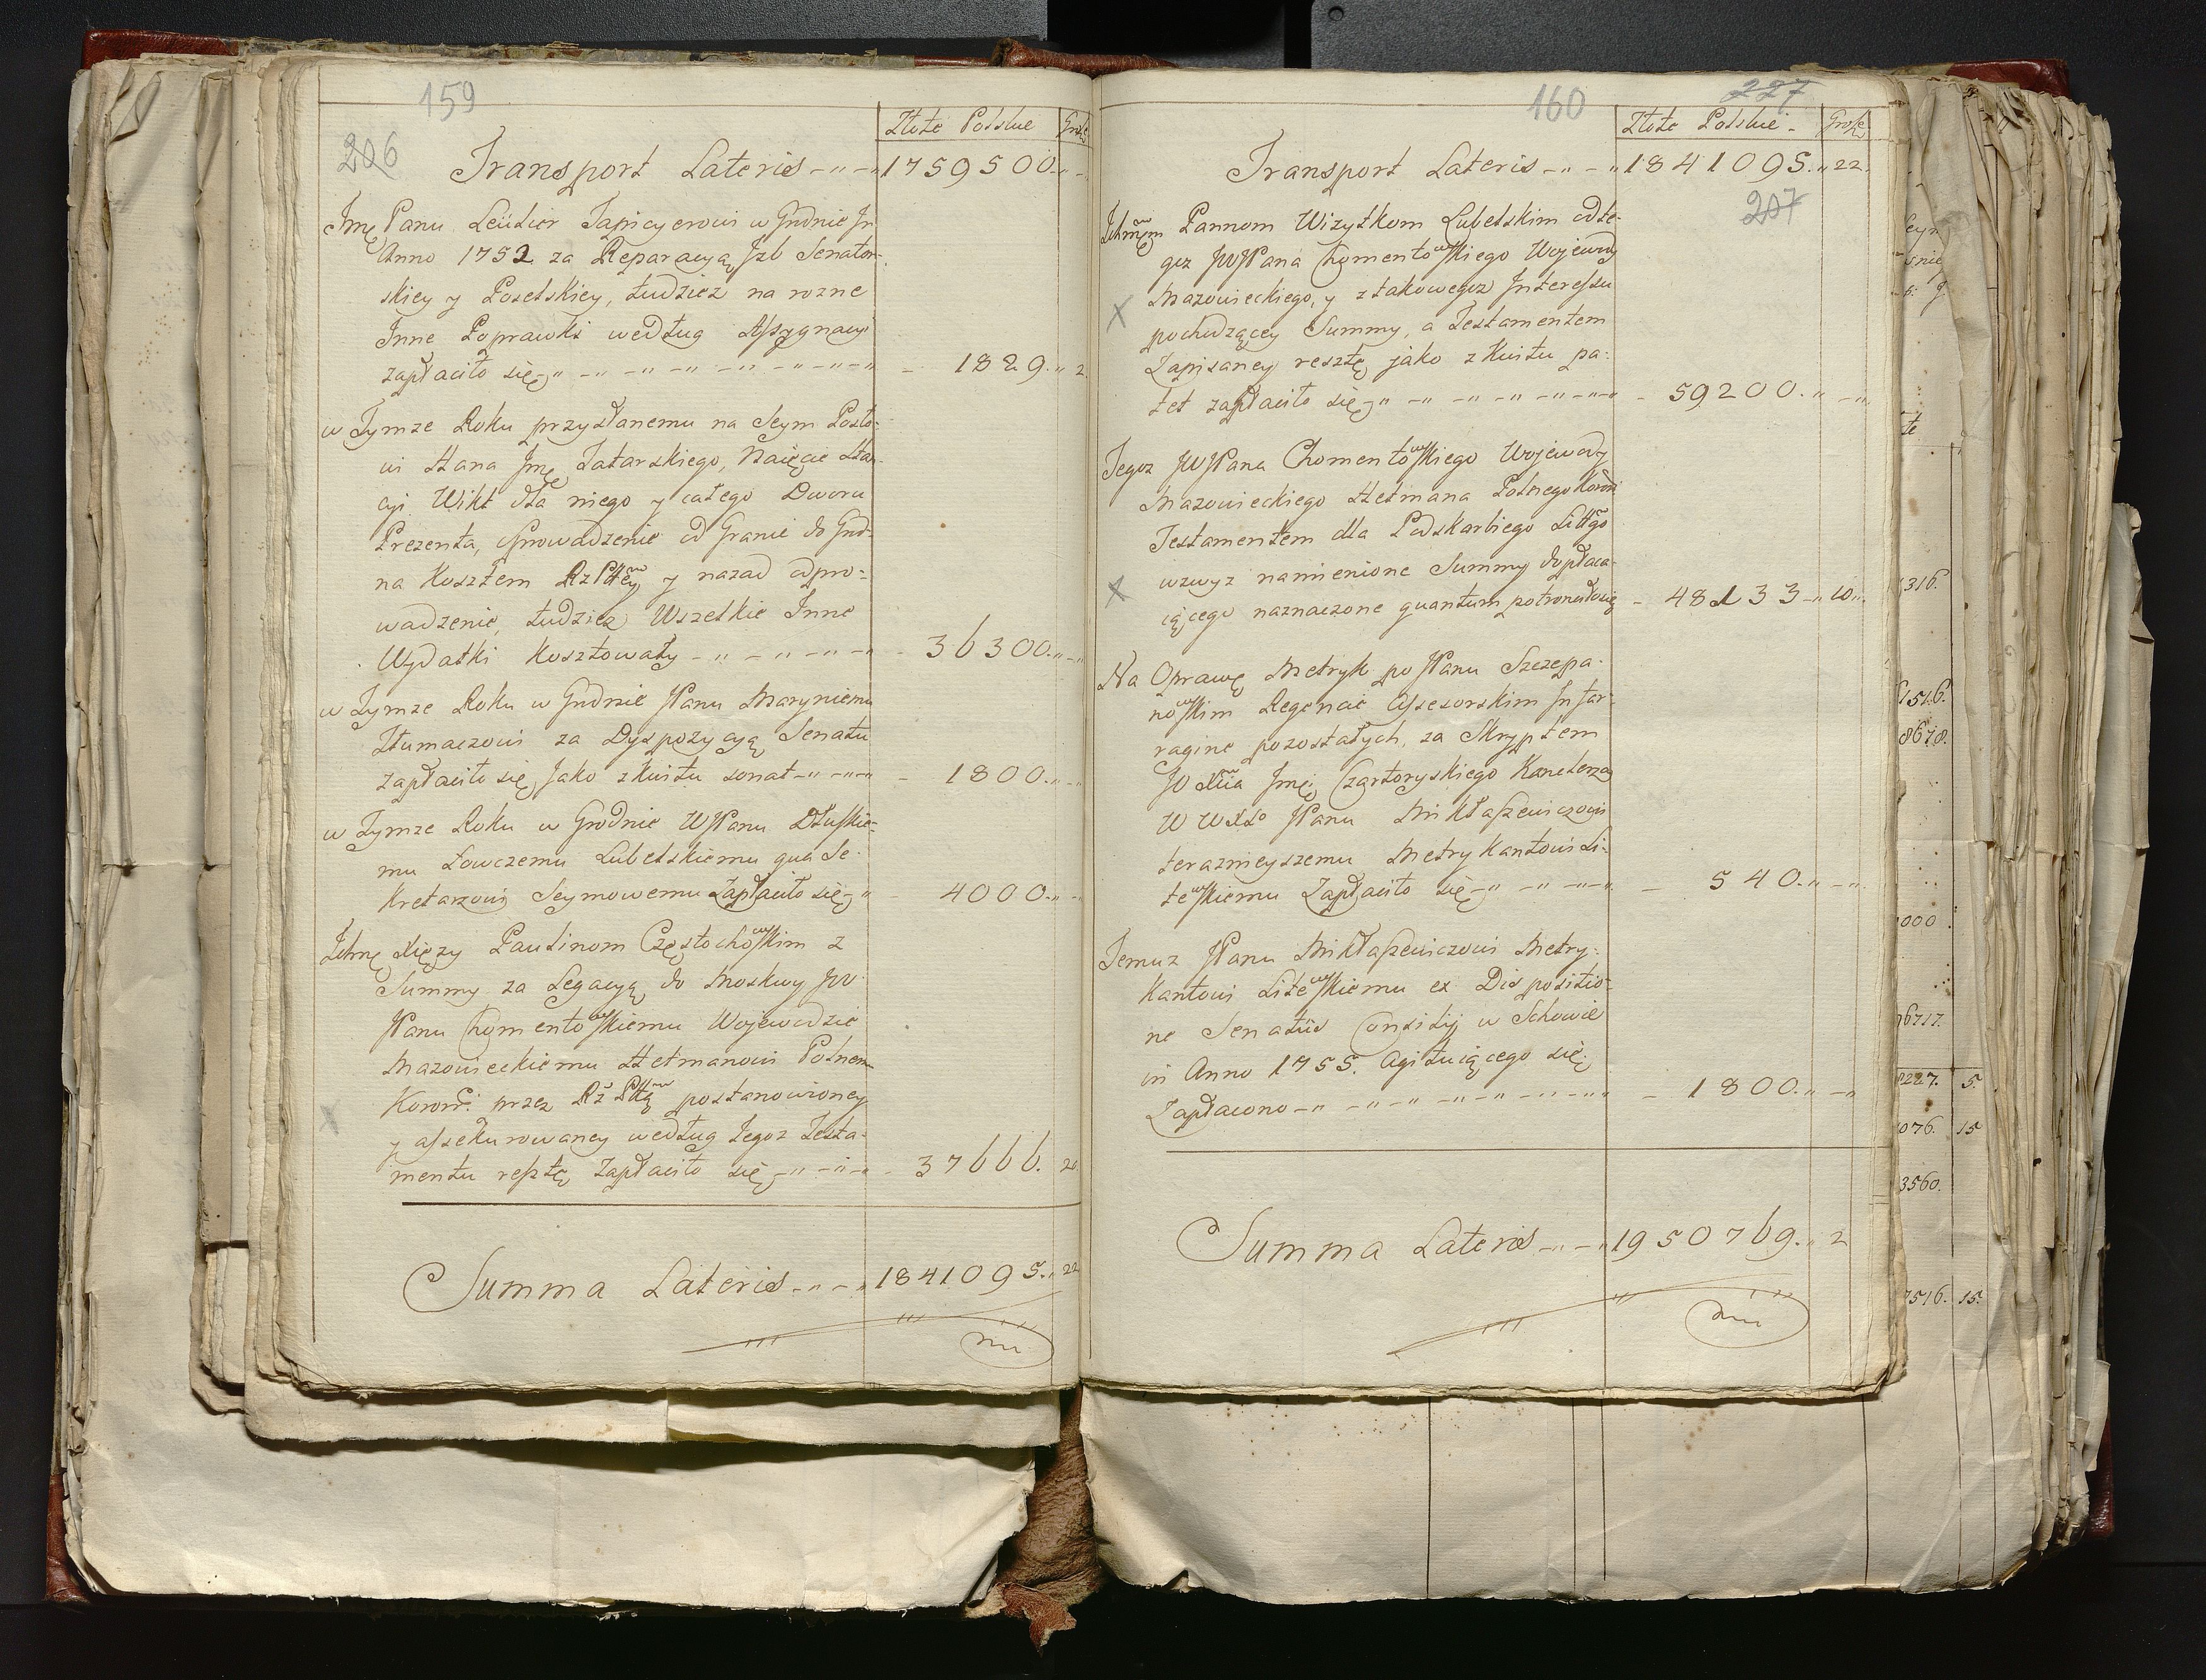 159
206
Złote Polskie Grosze
Transport Lateris 1759500
Jmę Panu Leüdier Tapicyerowi w Grodnie In
Anno 1752 za Reparacyą Jzb Senator-
skiey y Poselskiey, tudziesz na rozne
Jnne Poprawki według Assygnacyi
zapłaciło się 1829. 2
w Tymze Roku przysłanemu na Seym Posło-
wi Hana Jmę Tatarskiego, Naięcie Stan-
cyi Wikt dla niego y całego Dworu
Prezenta, Prowadzenie od Granic do Grod-
na Kosztem RzPttey y nazad odpro-
wadzenie, tudziesz Wszelkie Jnne
Wydatki Kosztowały 36300.
w Tymze Roku w Grodnie JPanu Maryniemu
Tłumaczowi za Dyspozycyą Senatu
zapłaciło się, Jako z Kwitu sonat 1800.
w Tymze Roku w Grodnie WJPanu Dłuskie-
mu Łowczemu Lubelskiemu qua Se-
kretarzowi Seymowemu zapłaciło się 4000.
Jchmę Xięzy Paulinom Częstochowskim z
Summy za Legacyą do Moskwy JW
JPanu Chomentowskiemu Wojewodzie
Mazowieckiemu Hetmanowi Polnem
Koronn: przez Rz Pttą postanowioney
y assekurowaney według Tegoz Testa-
mentu resztę zapłaciło się 37666. 20
Summa Lateris 1841095. 22
160
227
Złote Polskie Grosze
Transport Lateris 1841095. 22.
207
Jchmęm Pannom Wizytkom Lubelskim od te-
goz JWJPana Chomentowskiego Wojewody
Mazowieckiego, y z takowegoz Interessu
pochodzącey Summy, a Testamentem
Zapisaney resztę jako z Kwitu pa-
tet zapłaciło się 59200.
Tegoz JWJPana Chomentowskiego Wojewody
Mazowieckiego Hetmana Polnego Koronn
Testamentem dla Podskarbiego Littgo
wzwyz namienione Summy dopłaca-
iącego naznaczone quantum potronciło się 48133. 10.
Na Oprawę Metryk po JPanu Szczepa-
nowskim Regencie Assesorskim In far-
ragine pozostałych, za Skryptem
JO Xcia Jmę: Czartoryskiego Kanclerza
W WXLo JPanu Mikłaszewiczowi
teraznieyszemu Metrykantowi Li-
tewskiemu Zapłaciło się 540.
Temuz JPanu Mikłaszewiczowi Metry-
kantowi Litewskiemu ex Dispositio-
ne Senatüs Consilij w Schowie
in Anno 1755. Agituiącego się
Zapłacono 1800.
Summa Lateris 1950769. 2
316.
000
3560.